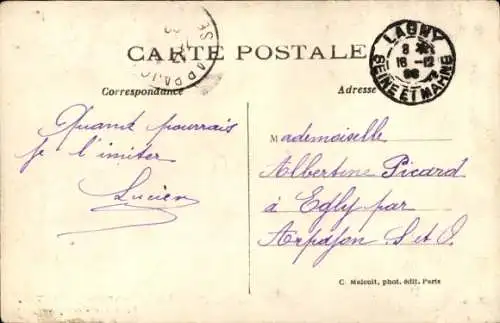 CARTE POSTALE
Correspondance
Adresse
LAGNY
16-12
SEINE ET MARNE
Quand pourrais
je l'imiter
Lucien
Mademoiselle
Albertine Picard
à Egly par
Arpajon S et O
C. Malcuit, phot. édit. Paris